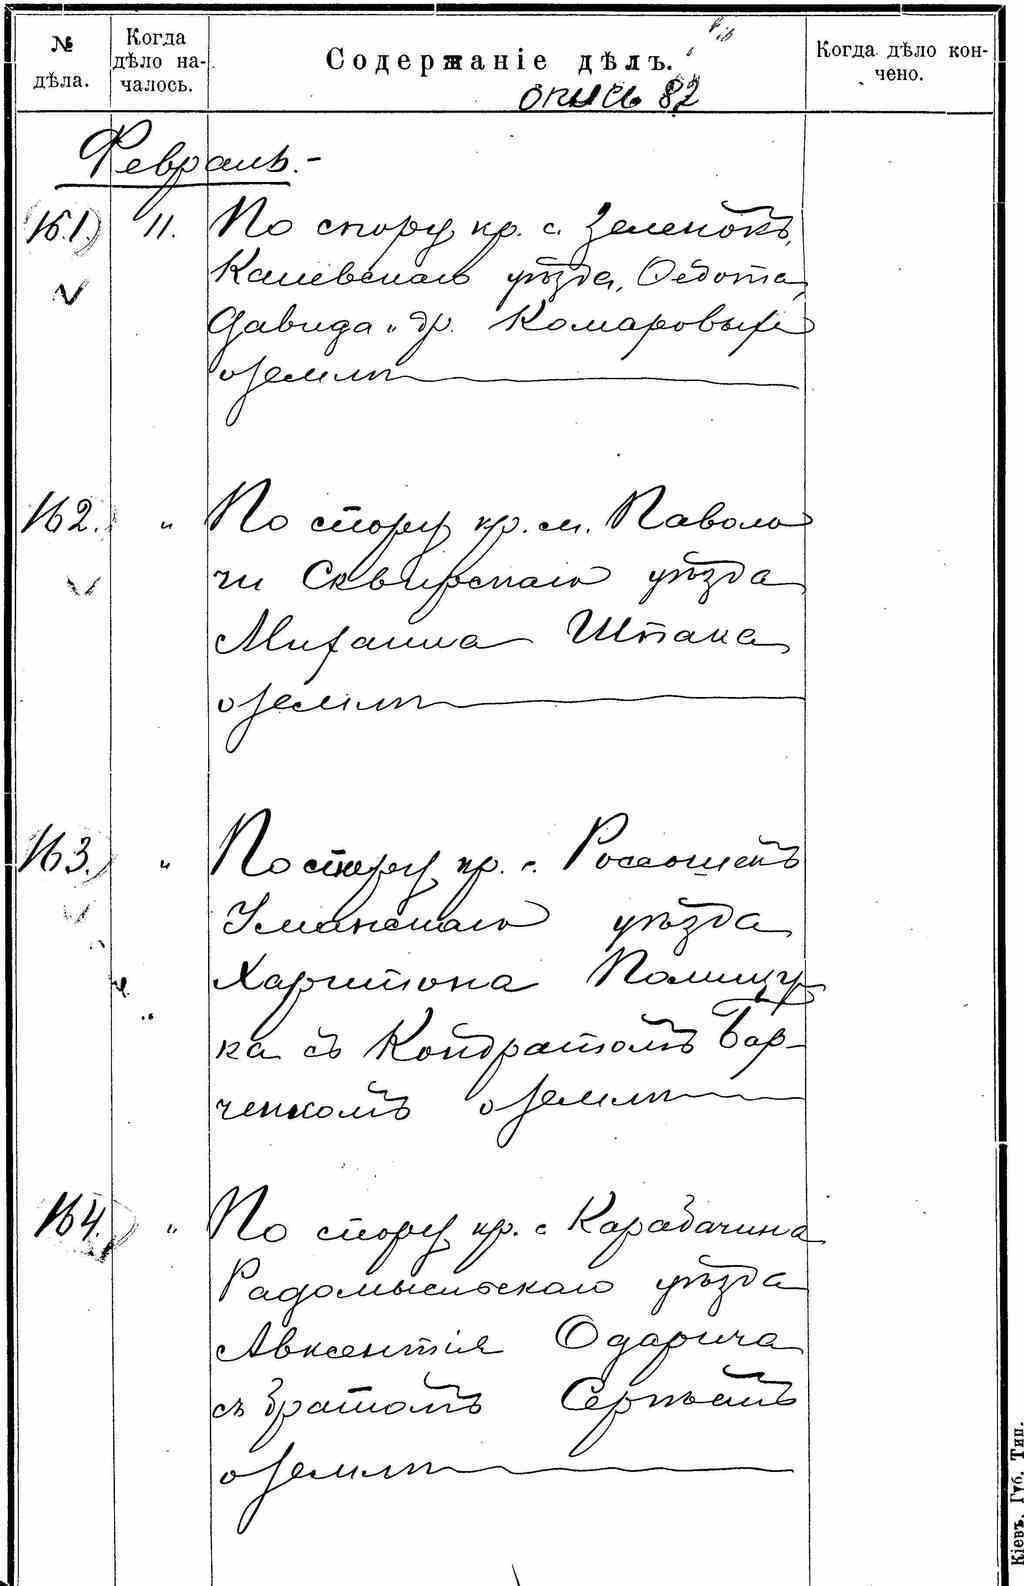 № дѣла.
Когда дѣло на-чалось.
Содержаніе дѣлъ.
Когда дѣло кон-чено.
опись 82
Февраль.-
161) 11. По спору кр. с. Зеленокъ,
Каневскаго уѣзда, Ѳедота,
Давида и др. Комаровыхъ
о землѣ
162. " По спору кр. м. Паволо
чи Сквирскаго уѣзда
Михаила Шпака
о землѣ
163.) " По спору кр. с. Россошекъ
Уманскаго уѣзда
Харитона Полищу
ка съ Кондратомъ Бар-
ченкомъ о землѣ
164.) " По спору кр. с Карабачина
Радомысльскаго уѣзда
Авксентія Одарича
съ братомъ Сергѣемъ
о землѣ
Кіевъ. Губ. Тип.